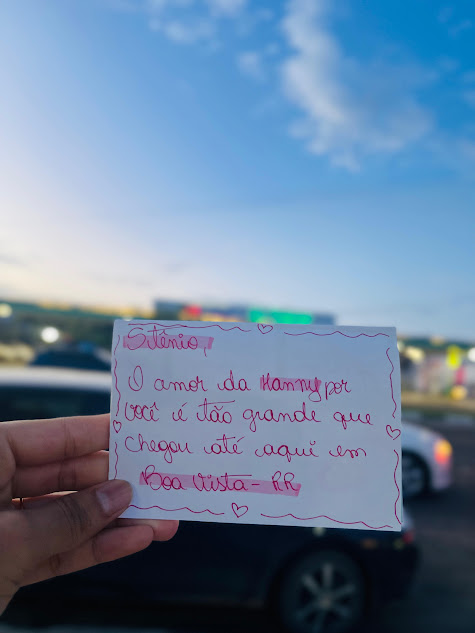 Stênio,
O amor da Hanny por
você é tão grande que
chegou até aqui em
Boa Vista - RR